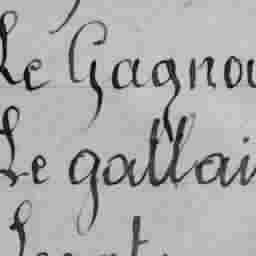 Le Gagnou
Le gallai